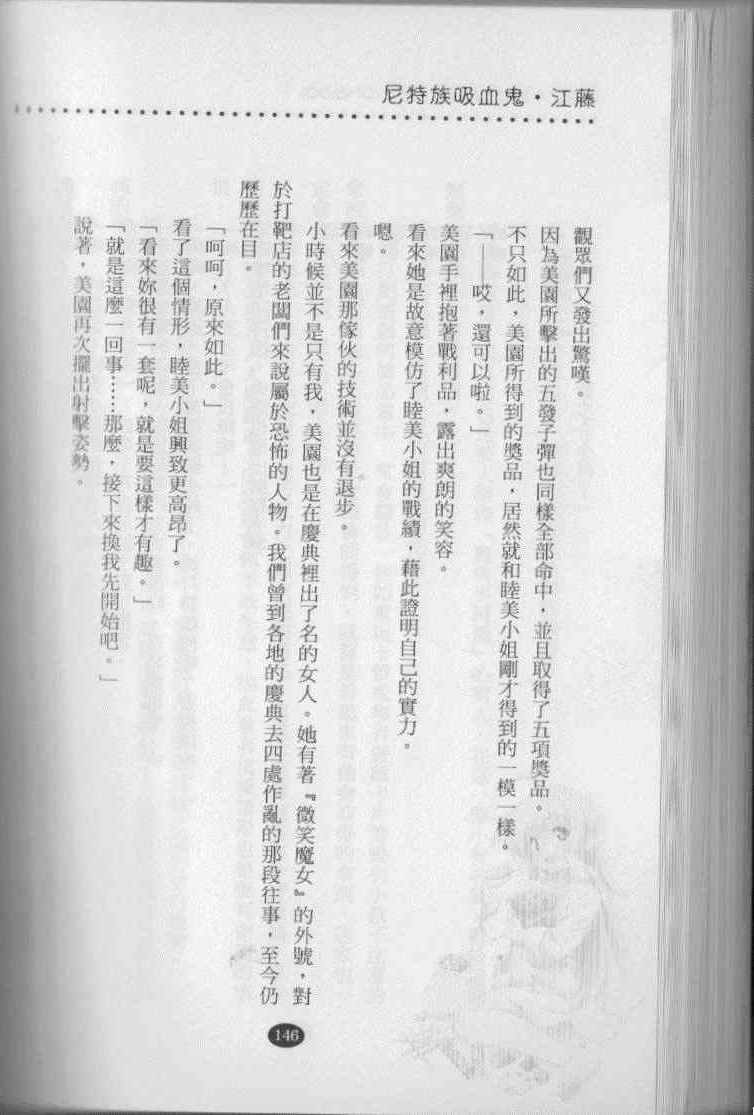 尼特族吸血鬼・江藤
觀眾們又發出驚嘆。
因為美園所擊出的五發子彈也同樣全部命中，並且取得了五項獎品。
不只如此，美園所得到的獎品，居然就和睦美小姐剛才得到的一模一樣。
「——哎，還可以啦。」
美園手裡抱著戰利品，露出爽朗的笑容。
看來她是故意模仿了睦美小姐的戰績，藉此證明自己的實力。
嗯。
看來美園那傢伙的技術並沒有退步。
小時候並不是只有我，美園也是在慶典裡出了名的女人。她有著『微笑魔女』的外號，對
於打靶店的老闆們來說屬於恐怖的人物。我們曾到各地的慶典去四處作亂的那段往事，至今仍
歷歷在目。
「呵呵，原來如此。」
看了這個情形，睦美小姐興致更高昂了。
「看來妳很有一套呢，就是要這樣才有趣。」
「就是這麼一回事……那麼，接下來換我先開始吧。」
說著，美園再次擺出射擊姿勢。
146